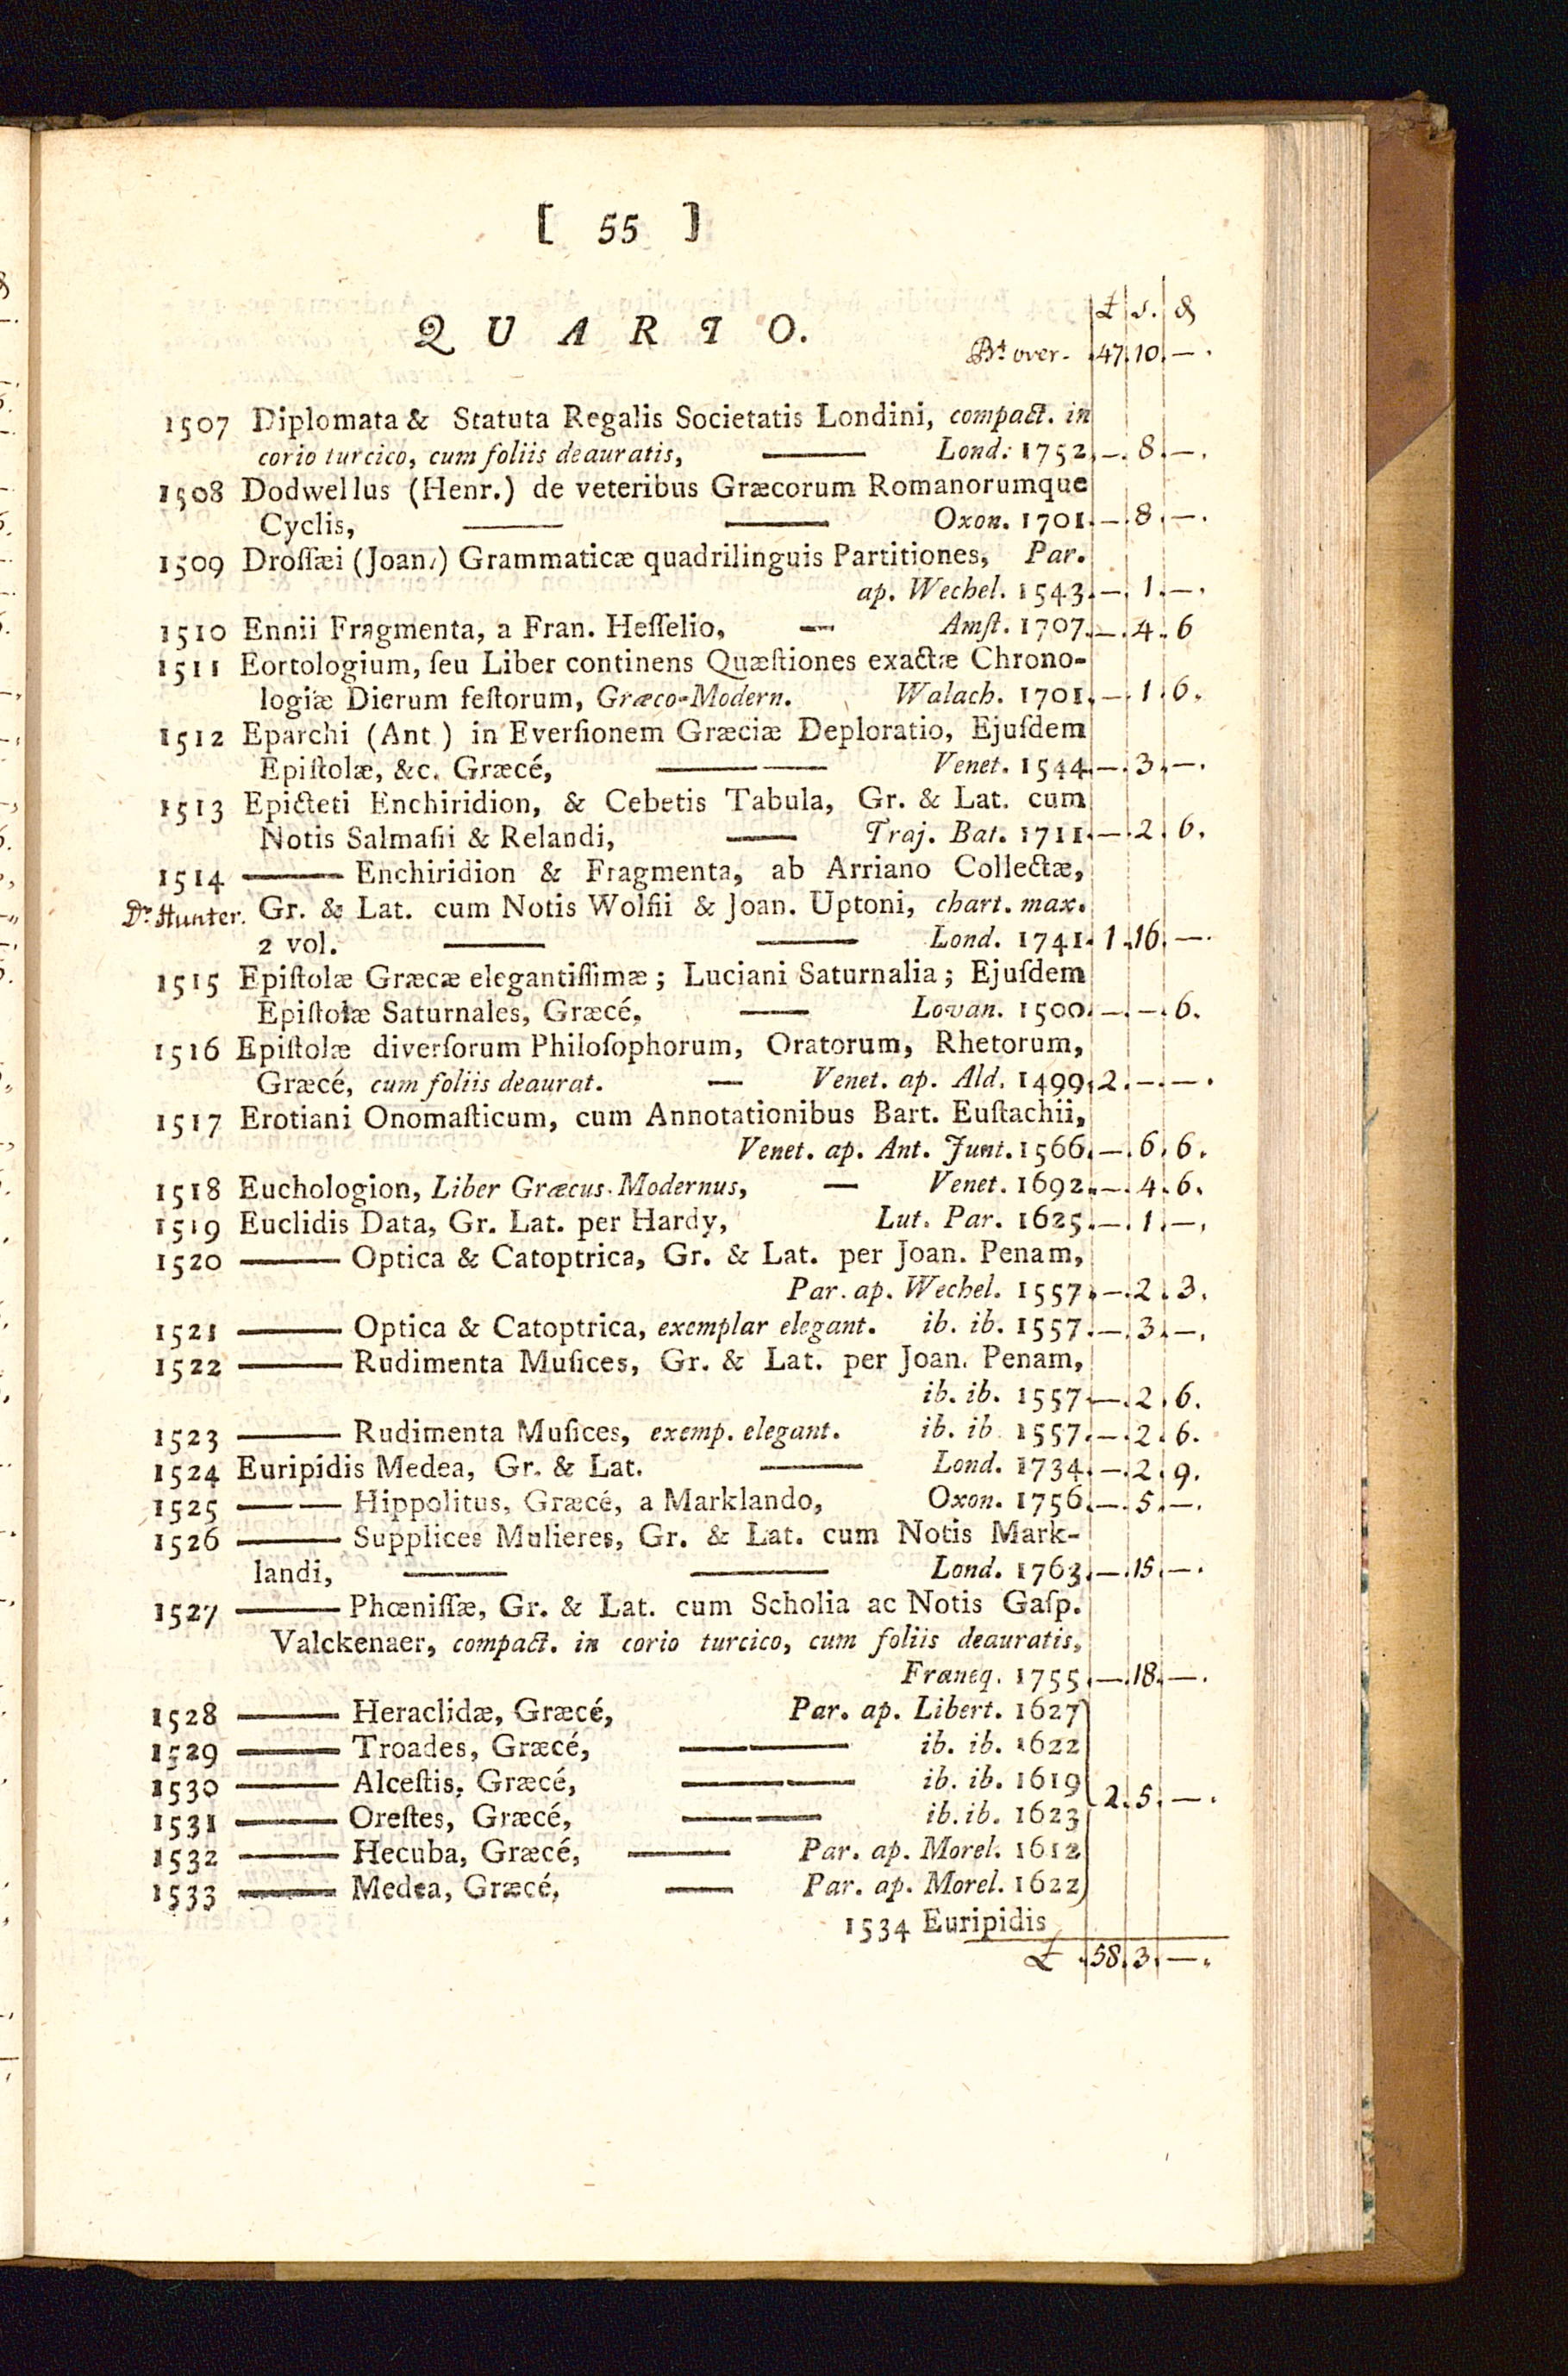 [ 55 ]
£ s. d
QUARTO.
Bt over - 47. 10. — .
1507 Diplomata & Statuta Regalis Societatis Londini, compact. in
corio turcico, cum foliis deauratis, —— Lond. 1752. — . 8 . — .
1508 Dodwellus (Henr.) de veteribus Græcorum Romanorumque
Cyclis, —— —— Oxon. 1701. — . 8 . — .
1509 Droſſæi (Joan.) Grammaticæ quadrilinguis Partitiones, Par.
ap. Wechel. 1543. — . 1 . — .
1510 Ennii Fragmenta, a Fran. Heſſelio, — Amſt. 1707. — . 4 . 6
1511 Eortologium, ſeu Liber continens Quæſtiones exactæ Chrono-
logiæ Dierum feſtorum, Græco-Modern. Walach. 1701. — . 1 . 6 .
1512 Eparchi (Ant.) in Everſionem Græciæ Deploratio, Ejuſdem
Epiſtolæ, &c. Græcé, —— — Venet. 1544. — . 3 . — .
1513 Epicteti Enchiridion, & Cebetis Tabula, Gr. & Lat. cum
Notis Salmaſii & Relandi, —— Traj. Bat. 1711. — . 2 . 6 .
1514 —— Enchiridion & Fragmenta, ab Arriano Collectæ,
Dr. Hunter. Gr. & Lat. cum Notis Wolfii & Joan. Uptoni, chart. max.
2 vol. —— —— Lond. 1741. 1 . 16 . — .
1515 Epiſtolæ Græcæ elegantiſſimæ ; Luciani Saturnalia ; Ejuſdem
Epiſtolæ Saturnales, Græcé, —— Lovan. 1500. — . — . 6 .
1516 Epiſtolæ diverſorum Philoſophorum, Oratorum, Rhetorum,
Græcé, cum foliis deaurat. — Venet. ap. Ald. 1499. 2 . — . — .
1517 Erotiani Onomaſticum, cum Annotationibus Bart. Euſtachii,
Venet. ap. Ant. Junt. 1566. — . 6 . 6 .
1518 Euchologion, Liber Græcus-Modernus, — Venet. 1692. — . 4 . 6 .
1519 Euclidis Data, Gr. Lat. per Hardy, Lut. Par. 1625. — . 1 . — .
1520 —— Optica & Catoptrica, Gr. & Lat. per Joan. Penam,
Par. ap. Wechel. 1557. — . 2 . 3 .
1521 —— Optica & Catoptrica, exemplar elegant. ib. ib. 1557. — . 3 . — .
1522 —— Rudimenta Muſices, Gr. & Lat. per Joan. Penam,
ib. ib. 1557. — . 2 . 6 .
1523 —— Rudimenta Muſices, exemp. elegant. ib. ib. 1557. — . 2 . 6 .
1524 Euripidis Medea, Gr. & Lat. —— Lond. 1734. — . 2 . 9 .
1525 —— Hippolitus, Græcé, a Marklando, Oxon. 1756. — . 5 . — .
1526 —— Supplices Mulieres, Gr. & Lat. cum Notis Mark-
landi, —— —— Lond. 1763. — . 15 . — .
1527 —— Phœniſſæ, Gr. & Lat. cum Scholia ac Notis Gaſp.
Valckenaer, compact. in corio turcico, cum foliis deauratis,
Franeq. 1755. — . 18 . — .
1528 —— Heraclidæ, Græcé, Par. ap. Libert. 1627
1529 —— Troades, Græcé, —— ib. ib. 1622
1530 —— Alceſtis, Græcé, —— ib. ib. 1619
2 . 5 . — .
1531 —— Oreſtes, Græcé, —— ib. ib. 1623
1532 —— Hecuba, Græcé, —— Par. ap. Morel. 1612
1533 —— Medea, Græcé, — Par. ap. Morel. 1622
1534 Euripidis
£ . 58 . 3 . — .